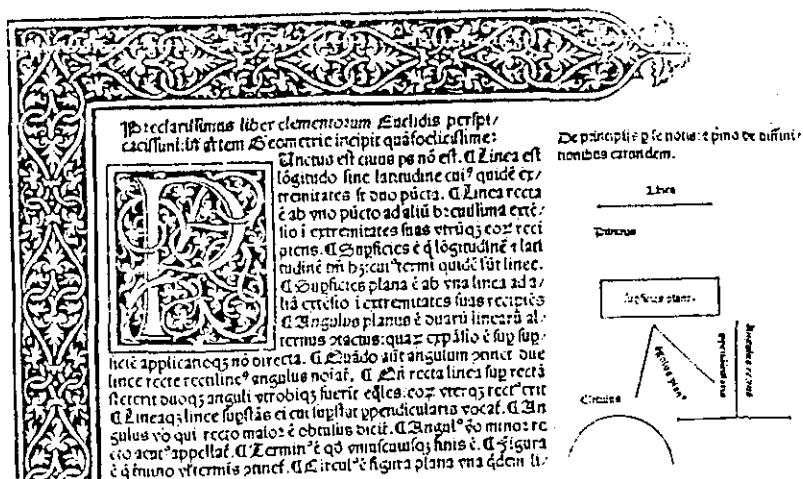 Preclarissimus liber elementorum Euclidis perspi/
cacissimi: in artem Geometrie incipit quāfoelicissime:
Unctus est cuius ps nō est. ¶ Linea est
lōgitudo sine latitudine cui⁹ quidē ex/
tremitates st duo pūcta. ¶ Linea recta
ē ab vno pūcto ad aliū breuissima extē/
sio i extremitates suas vtrūqȝ eoꝝ reci
piens. ¶ Supficies ē q̄ lōgitudinē ⁊ lati
tudinē tm̄ hȝ: cui⁹ termi quidē sūt linee.
¶ Supficies plana ē ab vna linea ad a/
liā extēsio i extremitates suas recipiēs
¶ Angulus planus ē duarū linearū al/
ternus ↄtactus: quaꝝ expāsio ē sup sup/
ficiē applicatioqȝ nō directa. ¶ Quādo aūt angulum ↄtinēt due
linee recte rectiline⁹ angulus noīat̄. ¶ Qn̄ recta linea sup rectā
steterit duoqȝ anguli vtrobiqȝ fuerit eq̄les: eoꝝ vterqȝ rect⁹ erit
¶ Lineaqȝ linee supstās ei cui supstat ppendicularis vocat̄. ¶ An
gulus vo qui recto maior ē obtusus dicit̄. ¶ Angul⁹ vo minor re
cto acut⁹ appellat̄. ¶ Termin⁹ ē qd̄ vniuscuiusqȝ finis ē. ¶ Figura
ē q̄ tmino vl termis ↄtinet̄. ¶ Circul⁹ ē figura plana vna q̄dem li/
De principijs p se notis: ⁊ pmo de diffini/
tionibus earundem.
Linea
Punctus
Supficies plana
Circulus